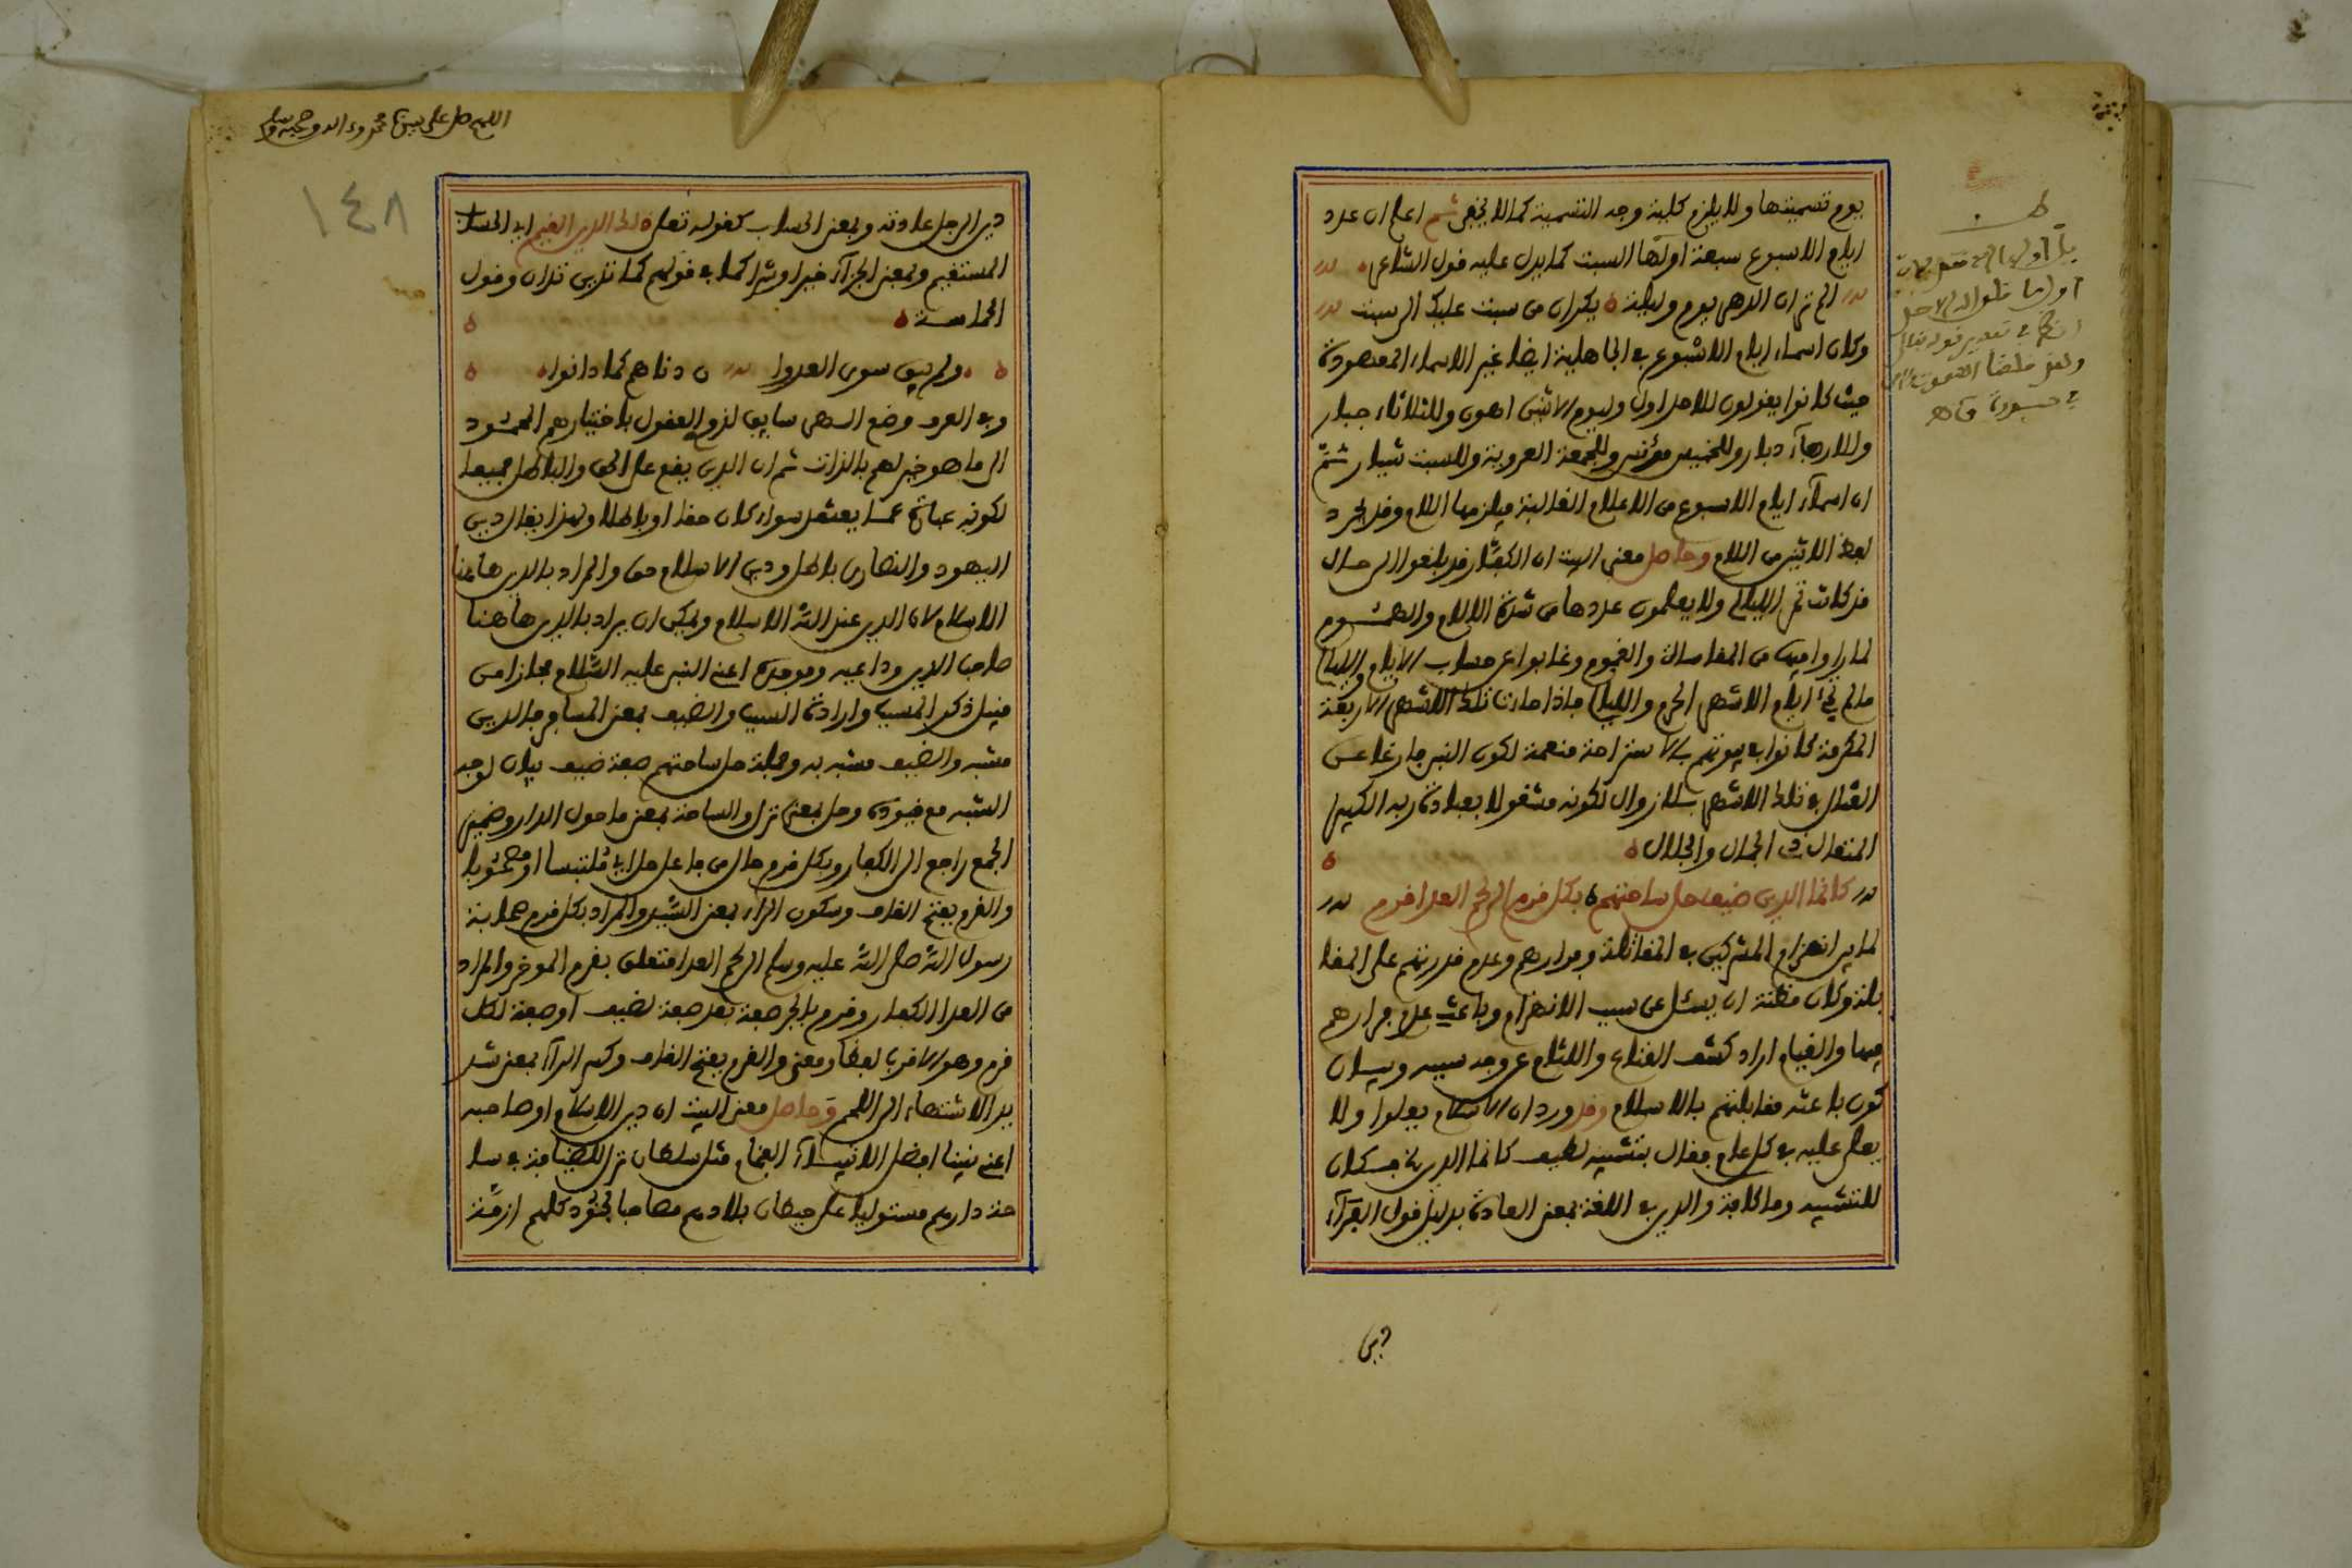 يوم تسميتها ولا يلزم كلية وجه التسمية كما لا يخفى ثم اعلم ان عدد
ايام الاسبوع سبعة اولها السبت كما يدل عليه قول الشاعر
الم تر ان الدهر يوم وليلة يكران من سبت عليك الى سبت
وكان اسماء ايام الاسبوع في الجاهلية ايضا غير الاسماء المعهودة
حيث كانوا يقولون للاحد اول وليوم الاثنين اهون وللثلاثاء جبار
وللاربعاء دبار وللخميس مؤنس وللجمعة العروبة وللسبت شيار ثم
ان اسماء ايام الاسبوع من الاعلام الغالبة فيلزمها اللام وقد يجرد
لفظ الاثنين من اللام وحاصل معنى البيت ان الكفار قد بلغوا الى حال
قد كانت تمر الليالي ولا يعلمون عددها من شدة الالام والهموم
لما راوا فيها من المقاساة والغموم وغابوا عن حساب الايام والليالي
ما لم يجئ ايام الاشهر الحرم والليالي فاذا جاءت تلك الاشهر الاربعة
المكرمة كانوا في بيوتهم بالاستراحة منعمة لكون النبي فارغا عن
القتال في تلك الاشهر بلا زوال لكونه مشغولا بعبادة ربه الكبير
المتعال ذي الجمال والجلال
كانما الدين ضيف حل ساحتهم بكل قرم الى لحم العدا قرم
لما بين انهزام المشركين في المقاتلة وفرارهم وعدم قدرتهم على المقا
بلة وكان مظنة ان يسئل عن سبب الانهزام وباعث علم فرارهم
فيها والقيام اراد كشف القناع واللثام عن وجه سببه وبيان
كون باعثه مقابلتهم بالاسلام وقد ورد ان الاسلام يعلوا ولا
يعلى عليه في كل عام فقال بتشبيه لطيف كانما الدين فكان
للتشبيه وما كافة والدين في اللغة بمعنى العادة بدليل قول الفراء
دين
اللهم صل على نبينا محمد وءاله وصحبه وسلم
١٤٨
دين الرجل عادته وبمعنى الحساب كقوله تعلى ذلك الدين القيم اي الحساب
المستقيم وبمعنى الجزاء خيرا وشرا كما في قولهم كما تدين تدان وقول
الحماسة
ولم يبق سوى العدوا ن دناهم كما دانوا
وفي العرف وضع الهي سايق لذوي العقول باختيارهم المحمود
الى ما هو خير لهم بالذات ثم ان الدين يقع على الحق والباطل جميعا
لكونه عبارة عما يعتقد سواء كان حقا او باطلا ولهذا يقال دين
اليهود والنصارى باطل ودين الاسلام حق والمراد بالدين هاهنا
الاسلام لان الدين عند الله الاسلام ويمكن ان يراد بالدين هاهنا
صاحب الدين وداعيه وموجده اعني النبي عليه السلام مجازا من
قبيل ذكر المسبب وارادة السبب والضيف بمعنى المسافر فالدين
مشبه والضيف مشبه به وجملة حل ساحتهم صفة ضيف بيان لوجه
الشبه مع قيوده وحل بمعنى نزل والساحة بمعنى ما حول الدار وضمير
الجمع راجع الى الكفار وبكل قرم حال من فاعل حل اي متلبسا او مصحوبا
والقرم بفتح القاف وسكون الراء بمعنى السيد والمراد بكل قرم صحابة
رسول الله صلى الله عليه وسلم الى لحم العدا متعلق بقرم الموخر والمراد
من العدا الكفار وقرم بالجر صفة بعد صفة لضيف او صفة لكل
قرم وهو الاقرب لفظا ومعنى والقرم بفتح القاف وكسر الراء بمعنى شد
يد الاشتهاء الى اللحم وحاصل معنى البيت ان دين الاسلام او صاحبه
اعني نبينا افضل الانبياء العظام مثل سلطان نزل للضيافة في سا
حة دارهم مستوليا على حيطان بلادهم مصاحبا لجنود كلهم